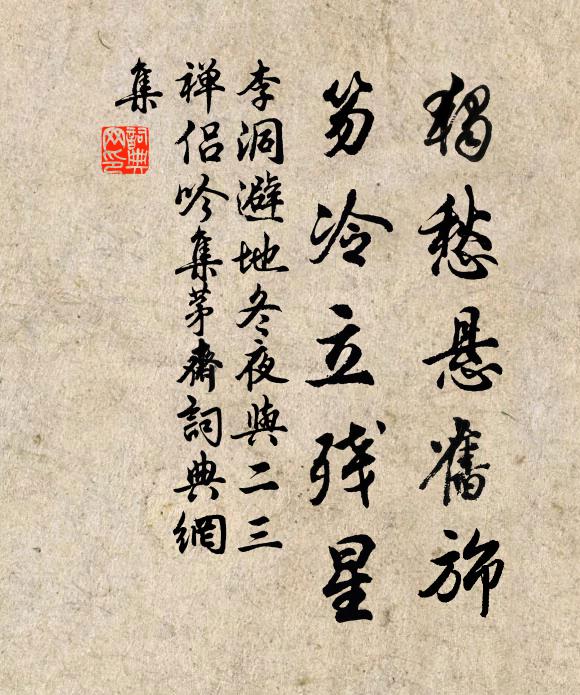 獨愁悬舊旆
笏冷立残星
李洞避地冬夜與二三
禅侣吟集茅齋詞典網
集
詞典
网印